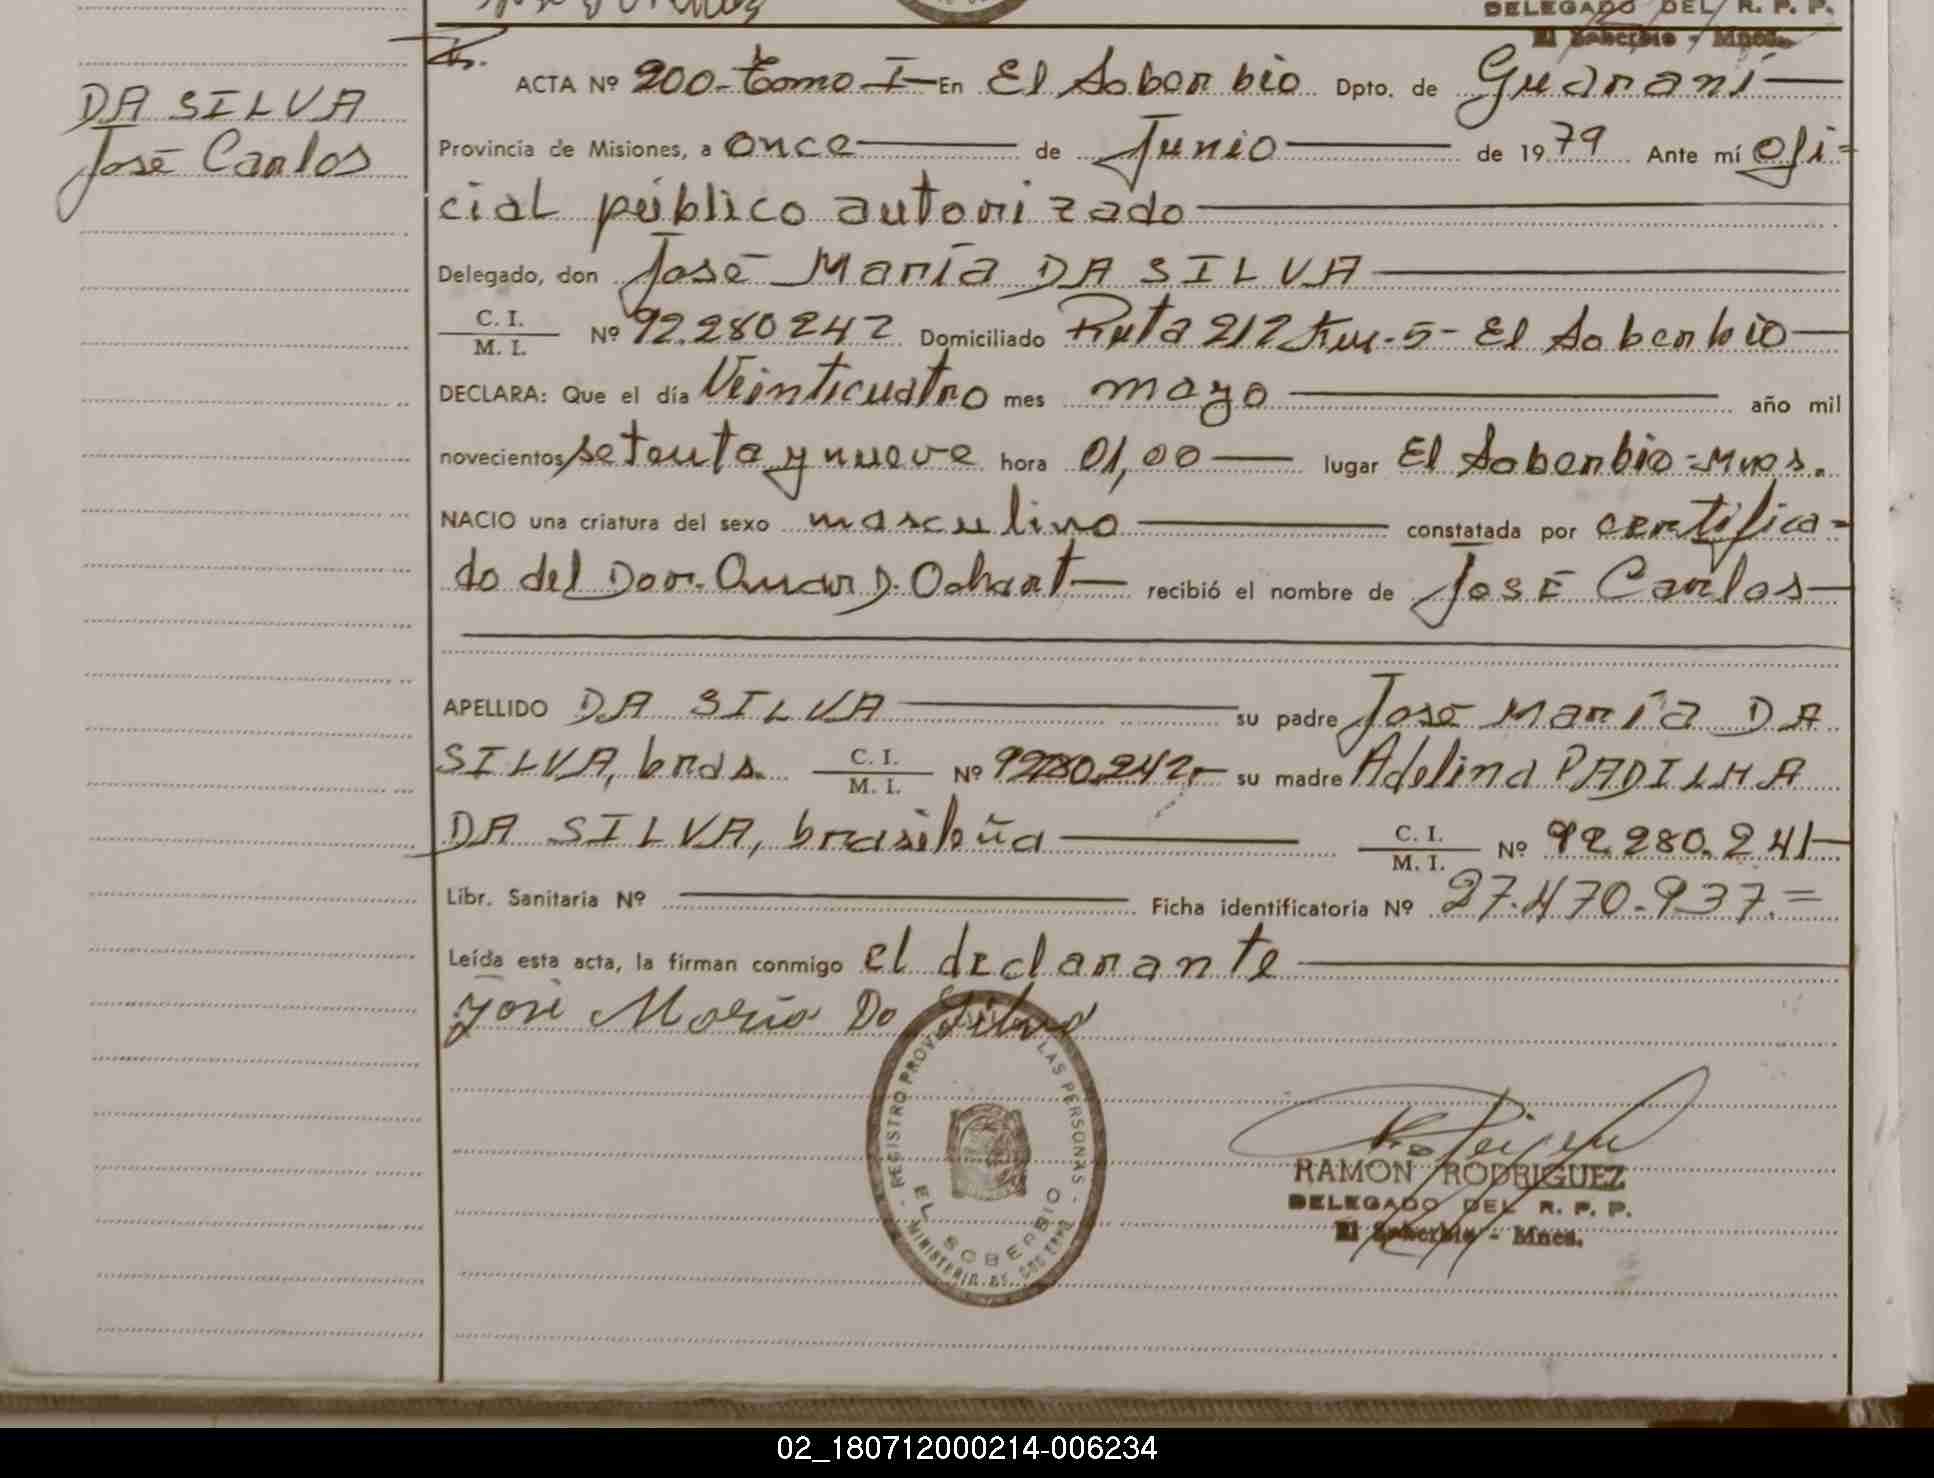 DELEGADO DEL R. P. P.
El Soberbio - Mnes.
DA SILVA
José Carlos
ACTA Nº 200-Tomo I En El Soberbio Dpto. de Guaraní
Provincia de Misiones, a once de Junio de 1979 Ante mí ofi-
cial público autorizado
Delegado, don José María DA SILVA
C. I.
M. I. Nº 92.280.242 Domiciliado Ruta 212 Km-5- El Soberbio
DECLARA: Que el día Veinticuatro mes mayo año mil
novecientos setenta y nueve hora 01,00 lugar El Soberbio-Mnes.
NACIO una criatura del sexo masculino constatada por certifica-
do del Dor. Omar D. recibió el nombre de José Carlos
APELLIDO DA SILVA su padre José María DA
SILVA, bras. C. I.
M. I. Nº 92280.242,- su madre Adelina PADILHA
DA SILVA, brasileña C. I.
M. I. Nº 92.280.241
Libr. Sanitaria Nº Ficha identificatoria Nº 27.470.937.=
Leída esta acta, la firman conmigo el declarante
José María Da Silva
REGISTRO PROV LAS PERSONAS
EL SOBERBIO
MINISTERIO DE GOBIERNO
RAMON RODRIGUEZ
DELEGADO DEL R. P. P.
El Soberbio - Mnes.
02_180712000214-006234